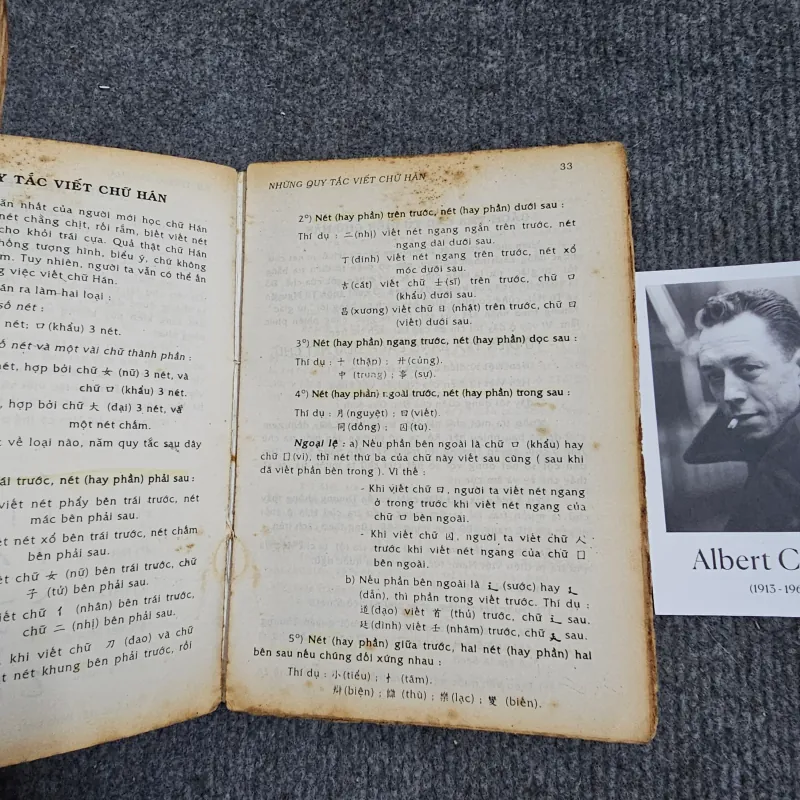 Y TẮC VIẾT CHỮ HÁN
ăn nhất của người mới học chữ Hán
nét chằng chịt, rối rắm, biết viết nét
cho khỏi trái cựa. Quả thật chữ Hán
hông tượng hình, biểu ý, chữ không
m. Tuy nhiên, người ta vẫn có thể ấn
g việc viết chữ Hán.
ân ra làm hai loại :
số nét :
nét; 口 (khẩu) 3 nét.
ố nét và một vài chữ thành phần :
nét, hợp bởi chữ 女 (nữ) 3 nét, và
chữ 口 (khẩu) 3 nét.
, hợp bởi chữ 大 (đại) 3 nét, và
một nét chấm.
c về loại nào, năm quy tắc sau đây
rái trước, nét (hay phần) phải sau :
viết nét phẩy bên trái trước, nét
mác bên phải sau.
ết nét xổ bên trái trước, nét chấm
bên phải sau.
ết chữ 女 (nữ) bên trái trước, chữ
子 (tử) bên phải sau.
iết chữ 亻 (nhân) bên trái trước,
chữ 二 (nhị) bên phải sau.
khi viết chữ 刀 (đao) và chữ
t nét khung bên phải trước, rồi
NHỮNG QUY TẮC VIẾT CHỮ HÁN
33
2º) Nét (hay phần) trên trước, nét (hay phần) dưới sau :
Thí dụ : 二(nhị) viết nét ngang ngắn trên trước, nét
ngang dài dưới sau.
丁(đinh) viết nét ngang trên trước, nét xổ
móc dưới sau.
吉(cát) viết chữ 士(sĩ) trên trước, chữ 口
(khẩu) dưới sau.
昌(xương) viết chữ 日 (nhật) trên trước, chữ 曰
(viết) dưới sau.
3º) Nét (hay phần) ngang trước, nét (hay phần) dọc sau :
Thí dụ : 十 (thập) ; 井(củng).
中 (trung) ; 事 (sự).
4º) Nét (hay phần) ngoài trước, nét (hay phần) trong sau :
Thí dụ : 月(nguyệt) ; 曰(viết).
同(đồng) ; 囚(tù).
Ngoại lệ : a) Nếu phần bên ngoài là chữ 口 (khẩu) hay
chữ 囗(vi), thì nét thứ ba của chữ này viết sau cùng ( sau khi
đã viết phần bên trong ). Vì thế :
- Khi viết chữ 曰, người ta viết nét ngang
ở trong trước khi viết nét ngang của
chữ 口 bên ngoài.
- Khi viết chữ 囚, người ta viết chữ 人
trước khi viết nét ngang của chữ 囗
bên ngoài.
b) Nếu phần bên ngoài là 辶 (sước) hay 廴
(dẫn), thì phần trong viết trước. Thí dụ :
道(đạo) viết 首 (thủ) trước, chữ 辶 sau.
廷(đình) viết 壬 (nhâm) trước, chữ 廴 sau.
5º) Nét (hay phần) giữa trước, hai nét (hay phần) hai
bên sau nếu chúng đối xứng nhau :
Thí dụ : 小(tiểu) ; 忄 (tâm).
辯(biện) ; (thù) ; 樂(lạc) ; 變 (biến).
Albert C
(1913 - 196